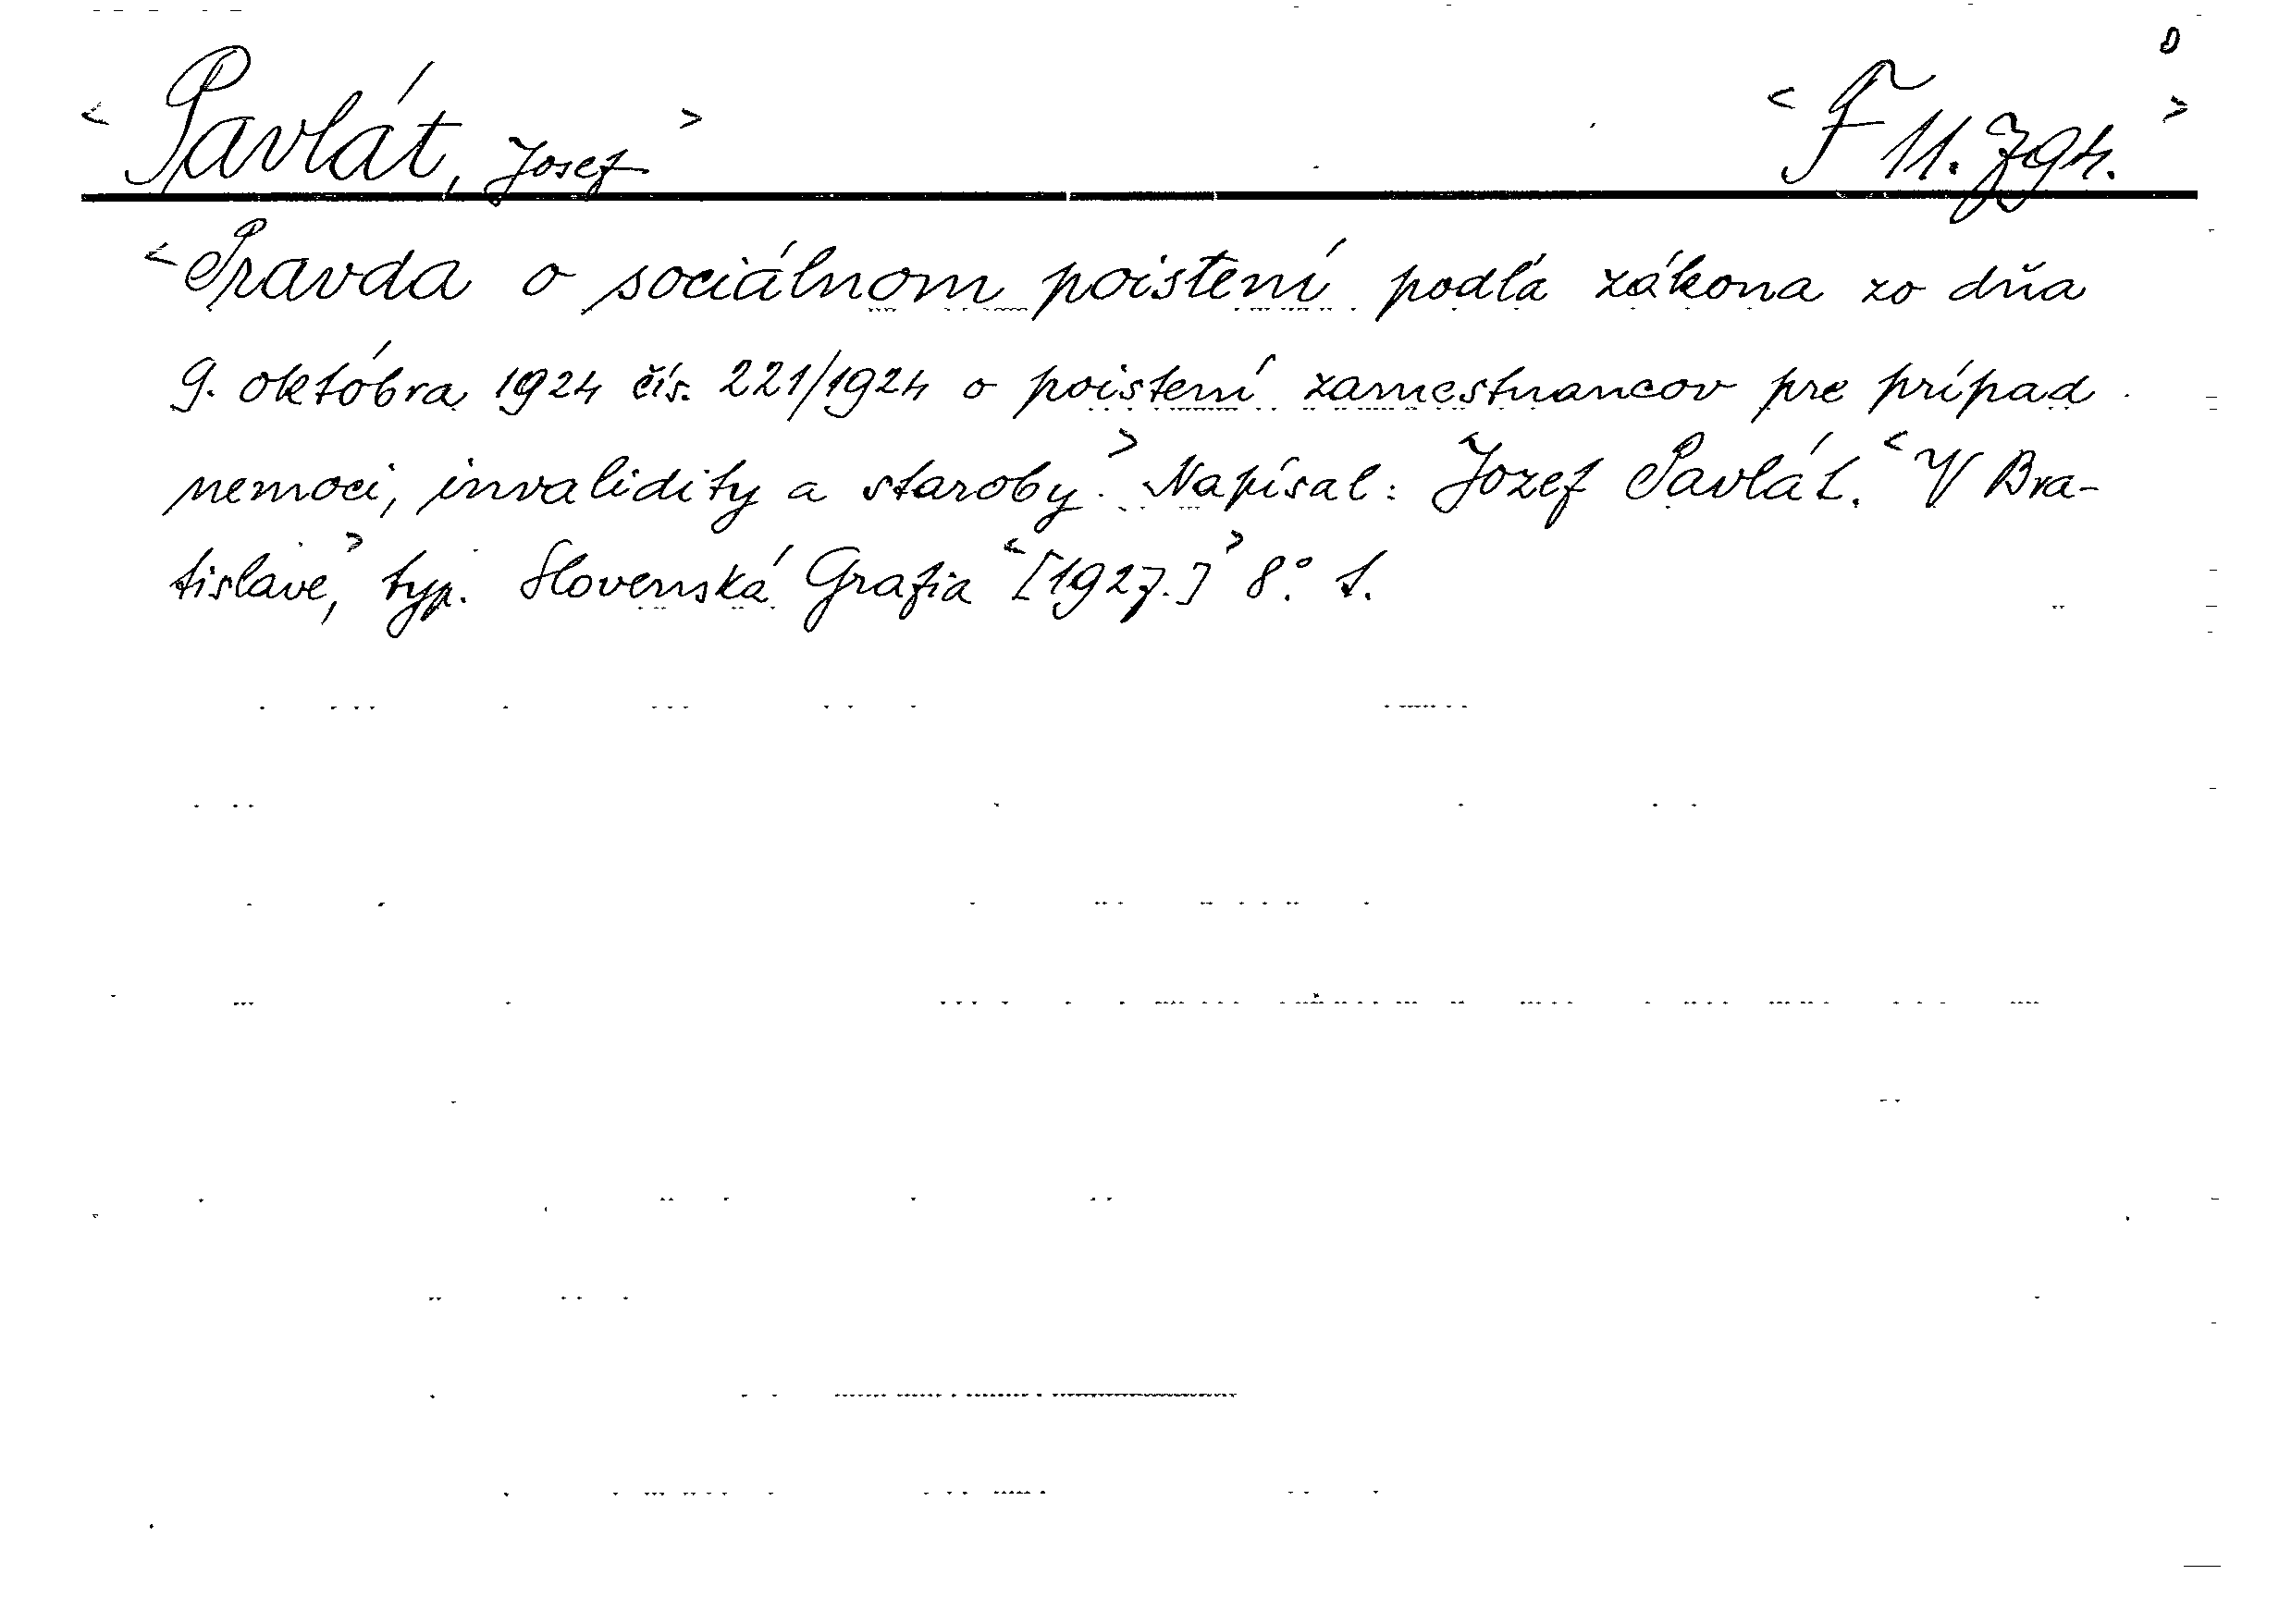 < Pavlát, Josef > < F 11.794. >
< Pravda o sociálnom poistení podľa zákona zo dňa
9. októbra 1924 čís. 221/1924 o poistení zamestnancov pre prípad
nemoci, invalidity a staroby. > Napísal: Jozef Pavlát. < V Bra-
tislave, > typ. Slovenská Grafia < [1927.] > 8°. 1.